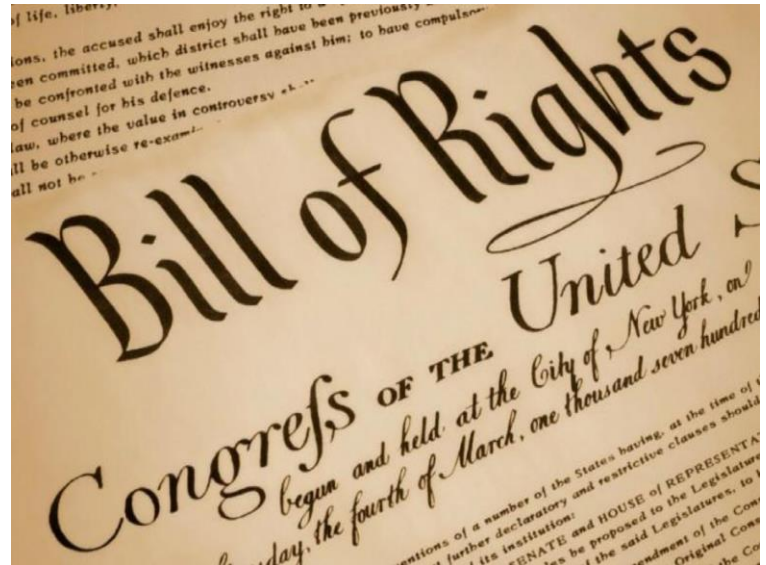 of life, liberty,
ions, the accused shall enjoy the right to a
en committed, which district shall have been previously
be confronted with the witnesses against him; to have compulsor
of counsel for his defence.
law, where the value in controversy
ll be otherwise re-exam
all not be
Bill of Rights
Congreſs OF THE United S
begun and held at the City of New York, on
sday, the fourth of March, one thousand seven hundred
entions of a number of the States having, at the time of
further declaratory and restrictive clauses should
its institution:
ENATE and HOUSE of REPRESENTA
es be proposed to the Legislature
the said Legislatures, to
endment of the Con
Original Cons
the Co